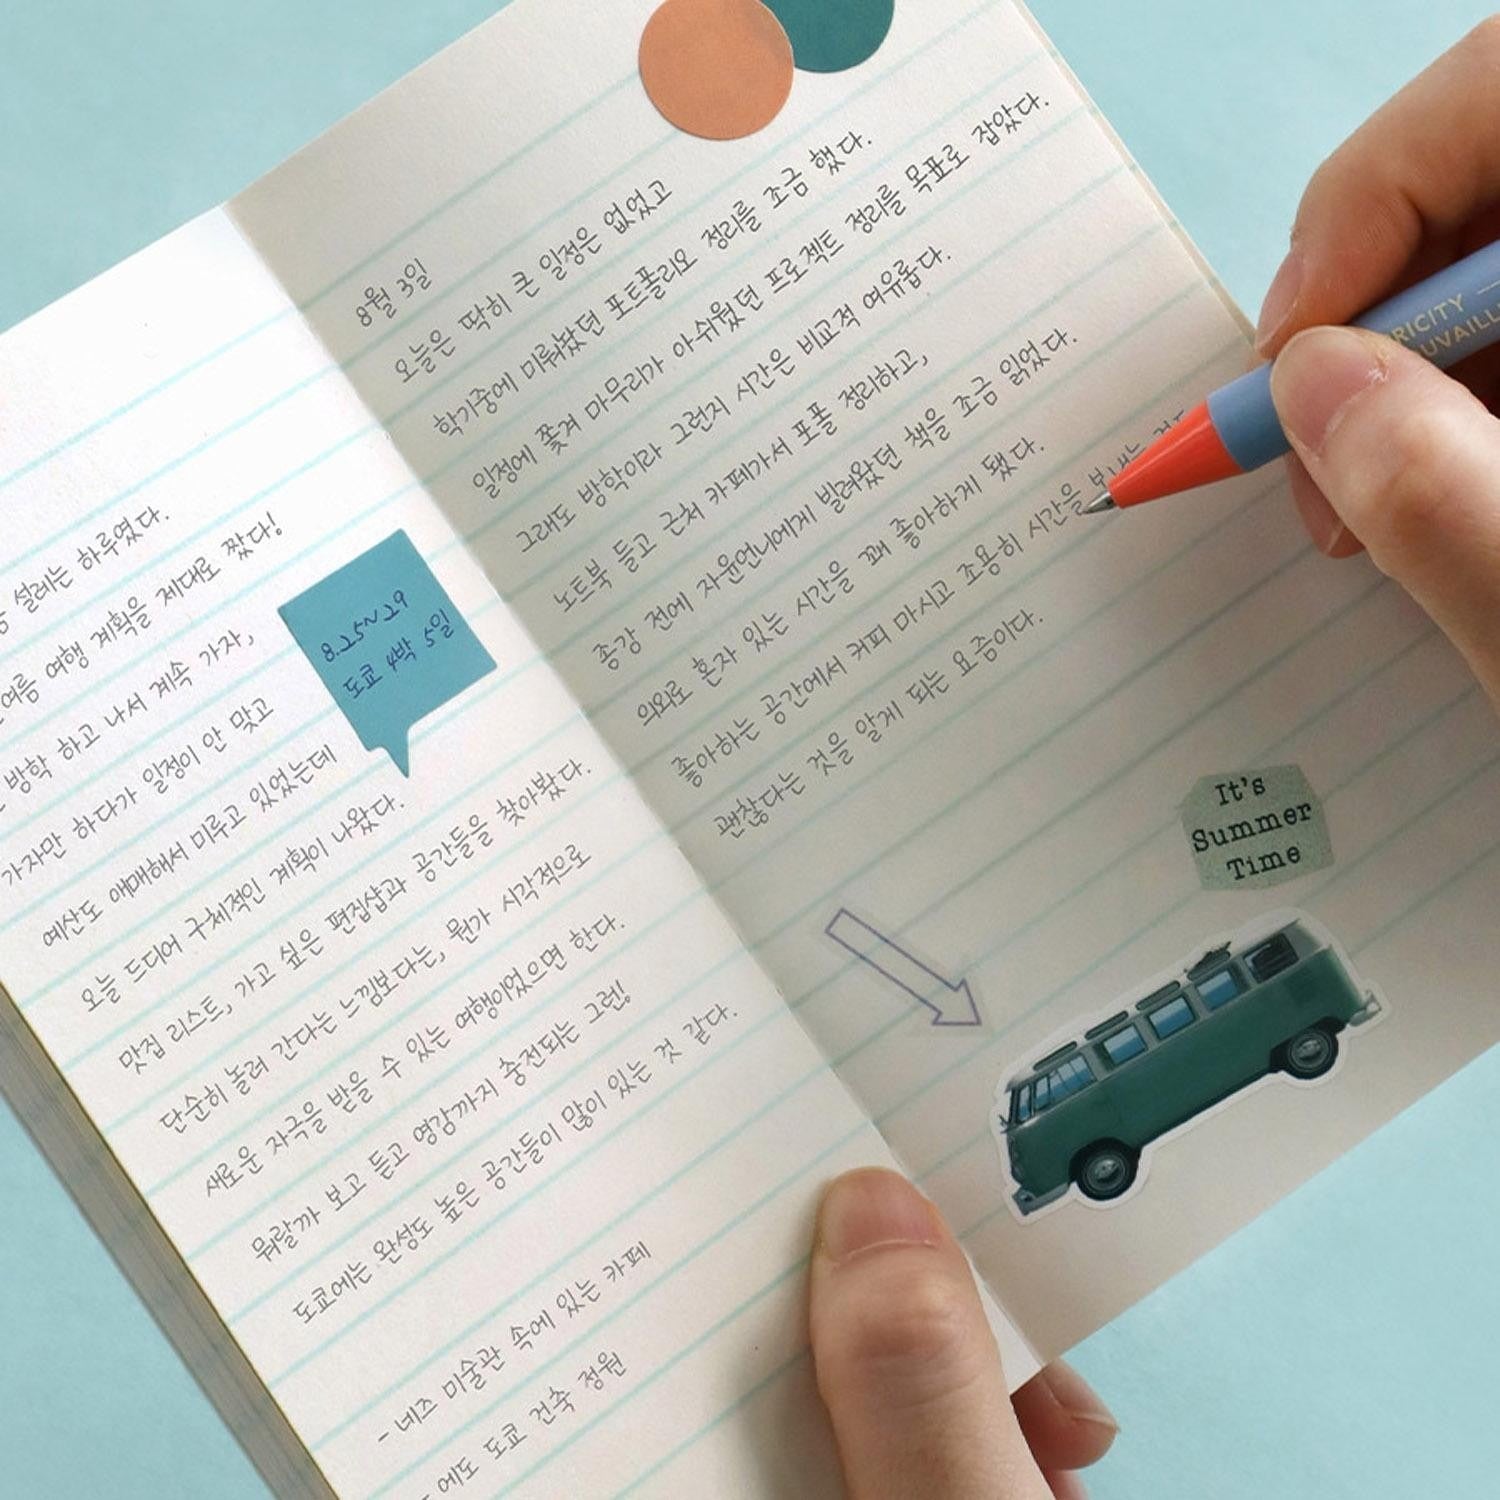 설레는 하루였다.
여름 여행 계획을 제대로 짰다!
방학 하고 나서 계속 가자,
가자만 하다가 일정이 안 맞고
예산도 애매해서 미루고 있었는데
오늘 드디어 구체적인 계획이 나왔다.
맛집 리스트, 가고 싶은 편집샵과 공간들을 찾아봤다.
단순히 놀러 간다는 느낌보다는, 뭔가 시각적으로
새로운 자극을 받을 수 있는 여행이었으면 한다.
뭐랄까 보고 듣고 영감까지 충전되는 그런!
도쿄에는 완성도 높은 공간들이 많이 있는 것 같다.
- 네즈 미술관 속에 있는 카페
- 에도 도쿄 건축 정원
8.25~29
도쿄 4박 5일
8월 3일
오늘은 딱히 큰 일정은 없었고
학기중에 미뤄놨던 포트폴리오 정리를 조금 했다.
일정에 쫓겨 마무리가 아쉬웠던 프로젝트 정리를 목표로 잡았다.
그래도 방학이라 그런지 시간은 비교적 여유롭다.
노트북 들고 근처 카페가서 포폴 정리하고,
종강 전에 자윤언니에게 빌려왔던 책을 조금 읽었다.
의외로 혼자 있는 시간을 꽤 좋아하게 됐다.
좋아하는 공간에서 커피 마시고 조용히 시간을 보내는
괜찮다는 것을 알게 되는 요즘이다.
It's
Summer
Time